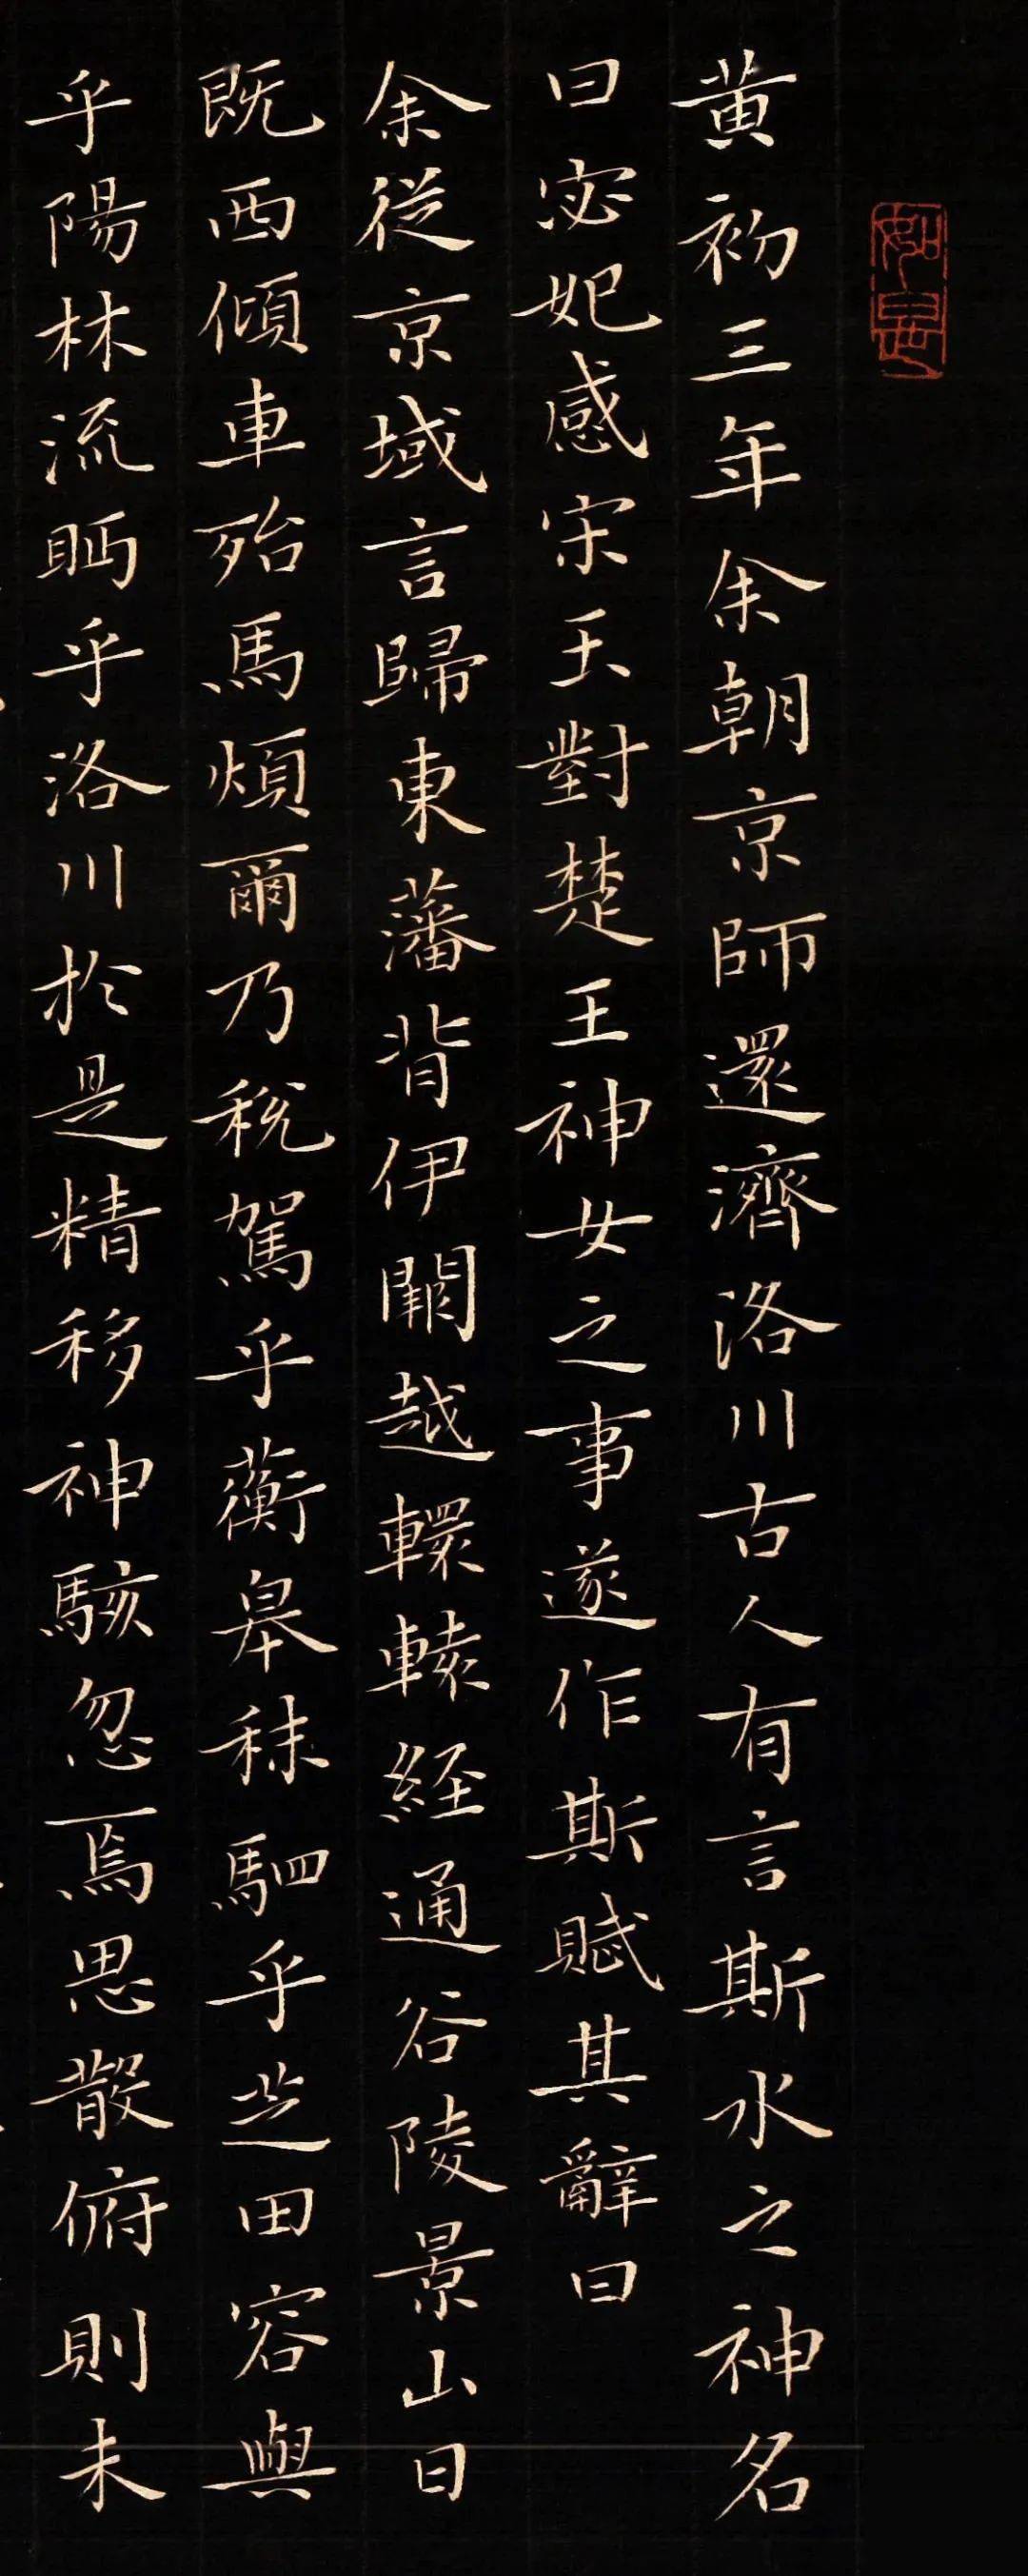 黄初三年余朝京師還濟洛川古人有言斯水之神名
曰宓妃感宋玉對楚王神女之事遂作斯賦其辭曰
余從京域言歸東藩背伊闕越轘轅經通谷陵景山日
既西傾車殆馬煩爾乃稅駕乎蘅皋秣駟乎芝田容與
乎陽林流眄乎洛川於是精移神駭忽焉思散俯則未